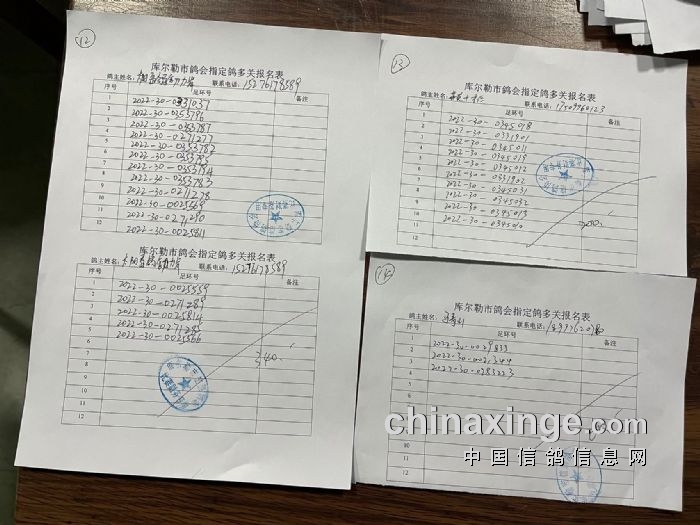 12
库尔勒市鸽会指定鸽多关报名表
鸽主姓名： 联系电话：15276178589
序号 足环号 备注
1 2022-30-0331037
2 2022-30-0253796
3 2022-30-0353787
4 2022-30-0271277
5 2022-30-0353782
6 2022-30-0353785
7 2022-30-0353794
8 2022-30-0353783
9 2022-30-0271278
10 2022-30-0025568
11 2022-30-0271280
12 2022-30-0025811
库尔勒市鸽会指定鸽多关报名表
鸽主姓名： 联系电话：15276178589
序号 足环号 备注
1 2022-30-0025559
2 2022-30-0271289
3 2022-30-0025814
4 2022-30-0271285
5 2022-30-0025566
6
7
8
9
10
11
12
13
库尔勒市鸽会指定鸽多关报名表
鸽主姓名： 联系电话：17509960123
序号 足环号 备注
1 2022-30-0345018
2 2022-30-0331901
3 2022-30-0345011
4 2022-30-0345019
5 2022-30-0345012
6 2022-30-0331902
7 2022-30-0345031
8 2022-30-0345032
9 2022-30-0345013
10 2022-30-0345010
11
12
14
库尔勒市鸽会指定鸽多关报名表
鸽主姓名： 联系电话：
序号 足环号 备注
1 2022-30-0029833
2 2022-30-0021344
3 2022-30-0383223
4
5
6
7
10
11
12
chinaxinge.com
中国信鸽信息网